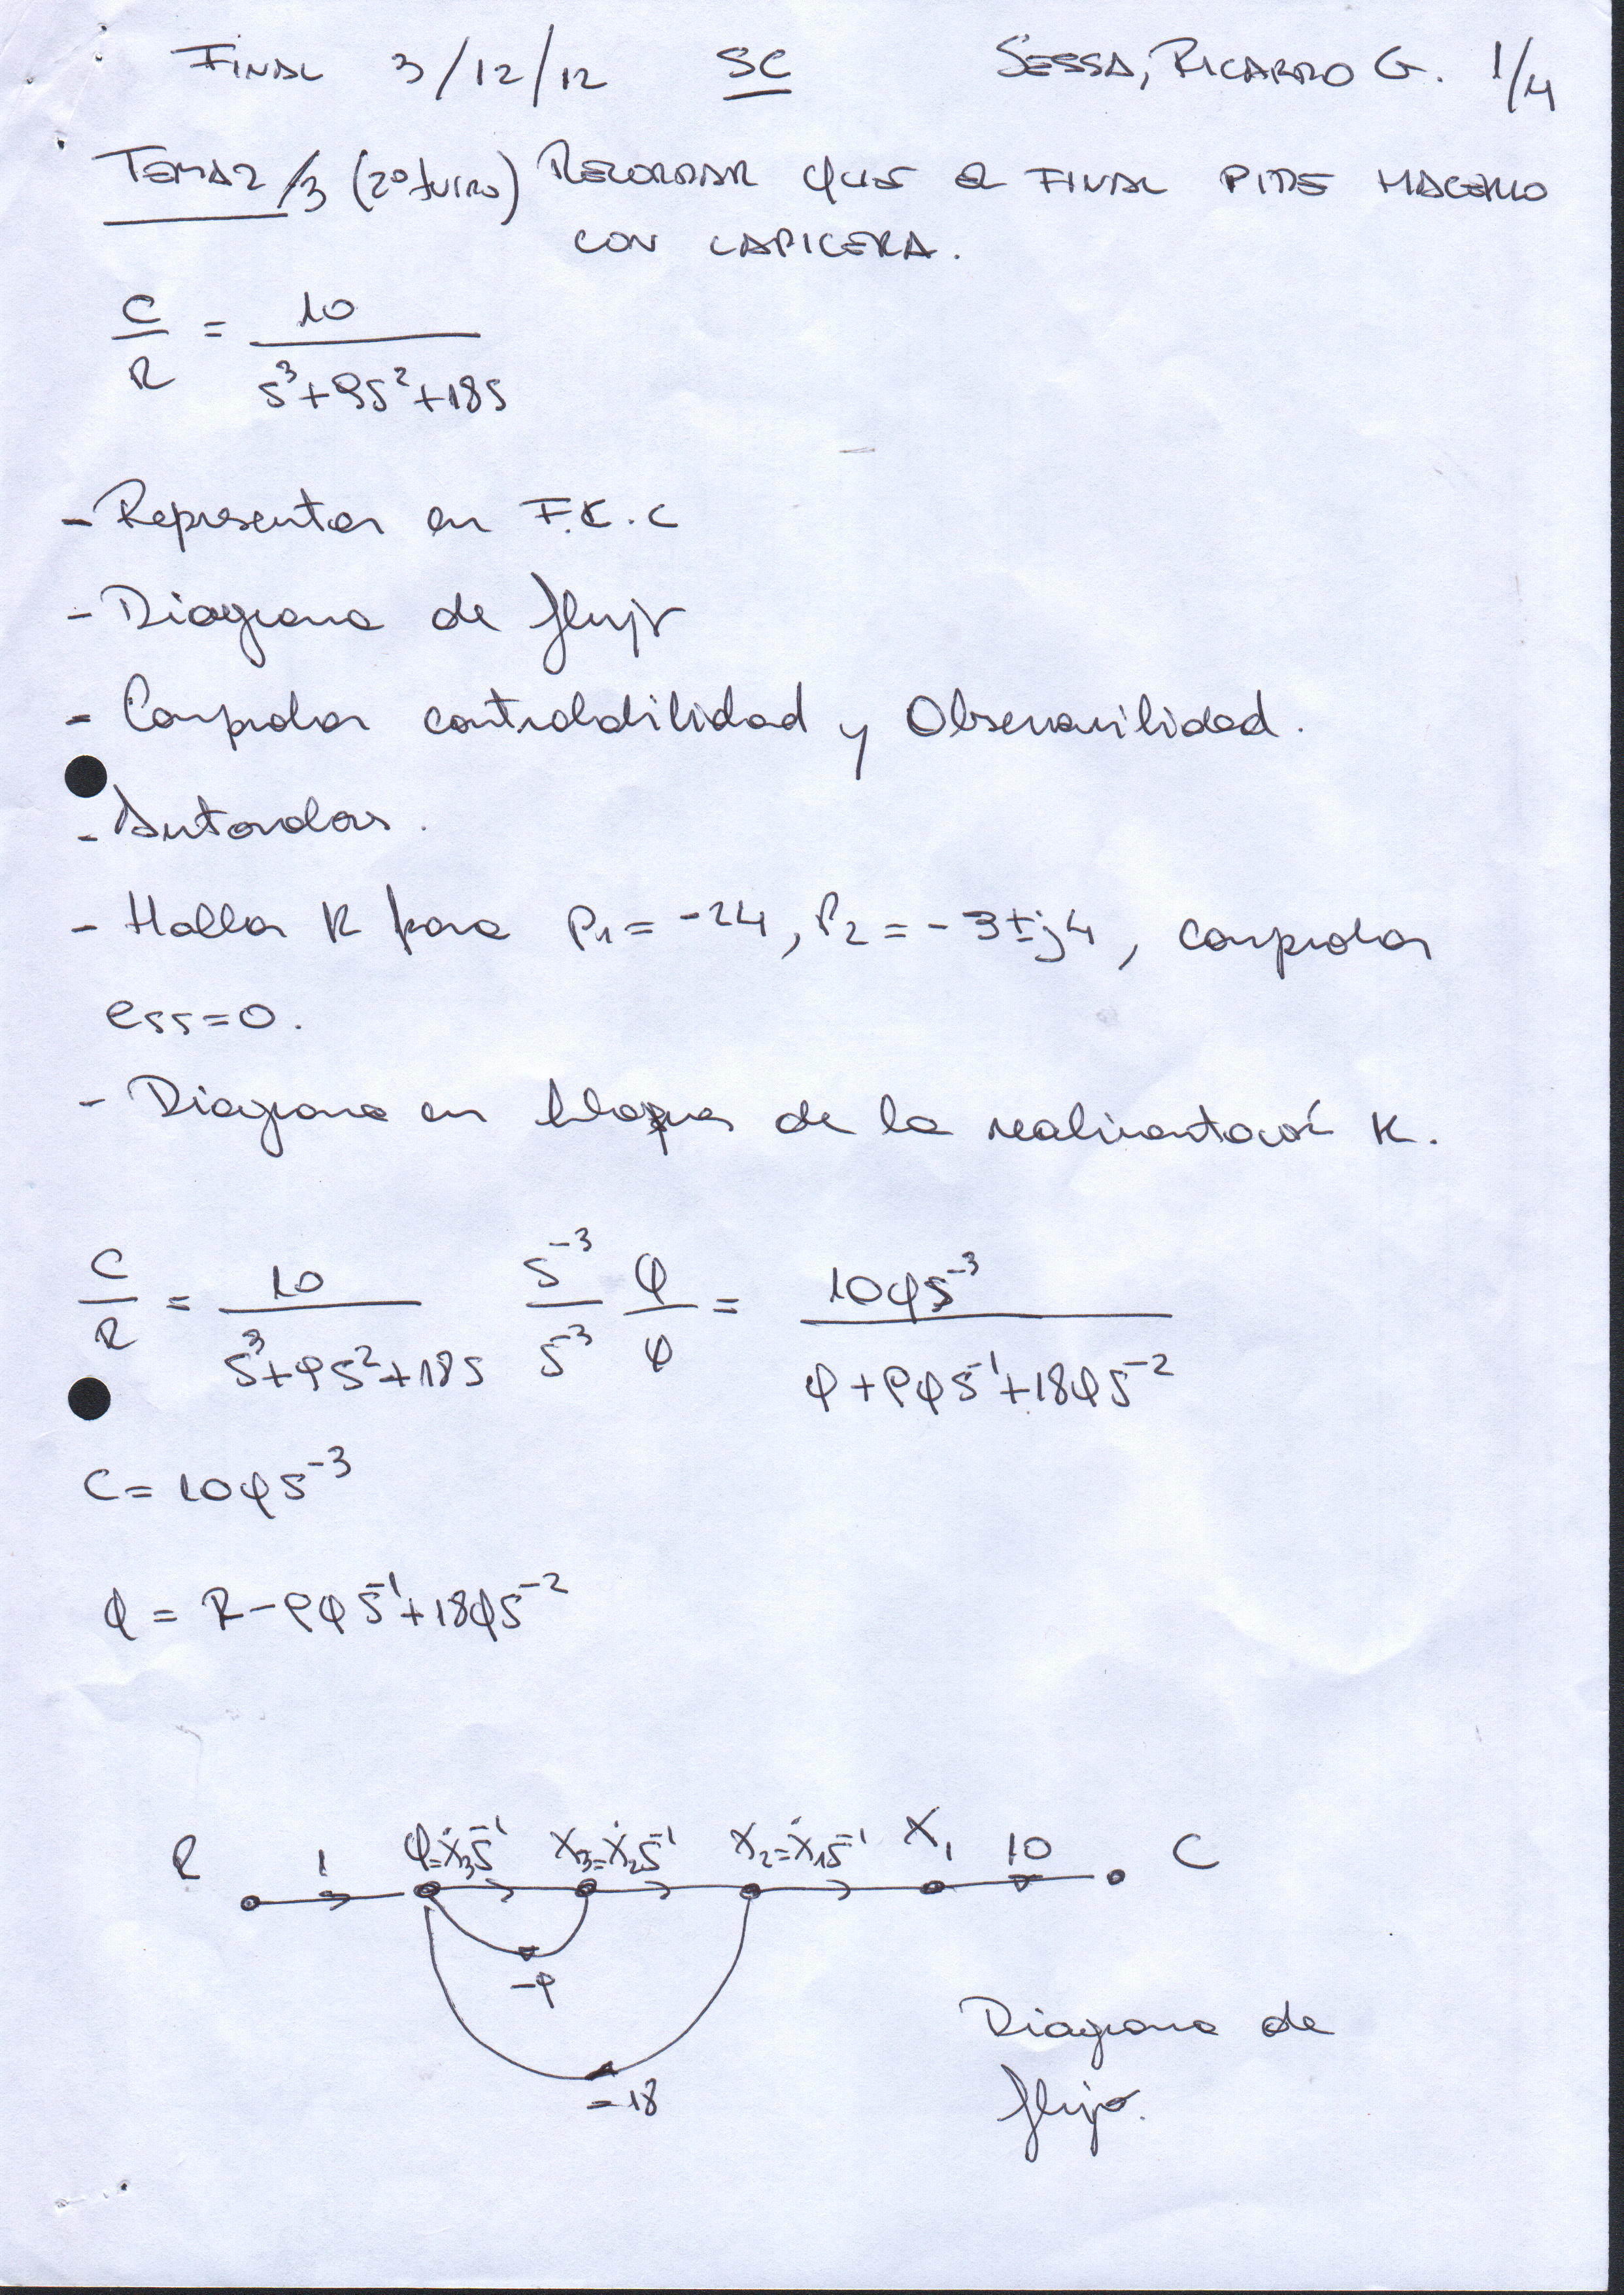 FINAL 3/12/12 SC SESSA, RICARDO G. 1/4
TEMA2/3 (2º turno) RECORDAR QUE EL FINAL PIDE HACERLO
CON LAPICERA.
C/R = 10/(s³+9s²+18s)
- Representar en F.C.C
- Diagrama de flujo
- Comprobar controlabilidad y Observavilidad.
- Autovalores.
- Hallar K para P₁=-24, P₂=-3±j4, comprobar
ess=0.
- Diagrama en bloques de la realimentación K.
C/R = 10/(s³+9s²+18s) s⁻³/s⁻³ φ/φ = 10φs⁻³/(φ+9φs⁻¹+18φs⁻²)
C=10φs⁻³
φ = R-9φs⁻¹+18φs⁻²
R 1 φ=ẋ₃s⁻¹ x₃=ẋ₂s⁻¹ x₂=ẋ₁s⁻¹ X₁ 10 C
-9
-18
Diagrama de
flujo.